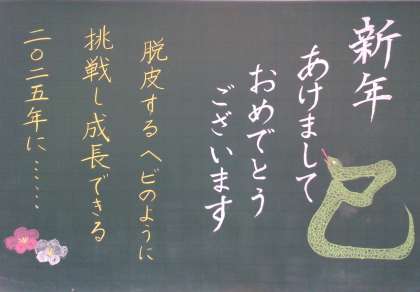 新年
あけまして
おめでとう
ございます
巳
脱皮するヘビのように
挑戦し成長できる
二〇二五年に……